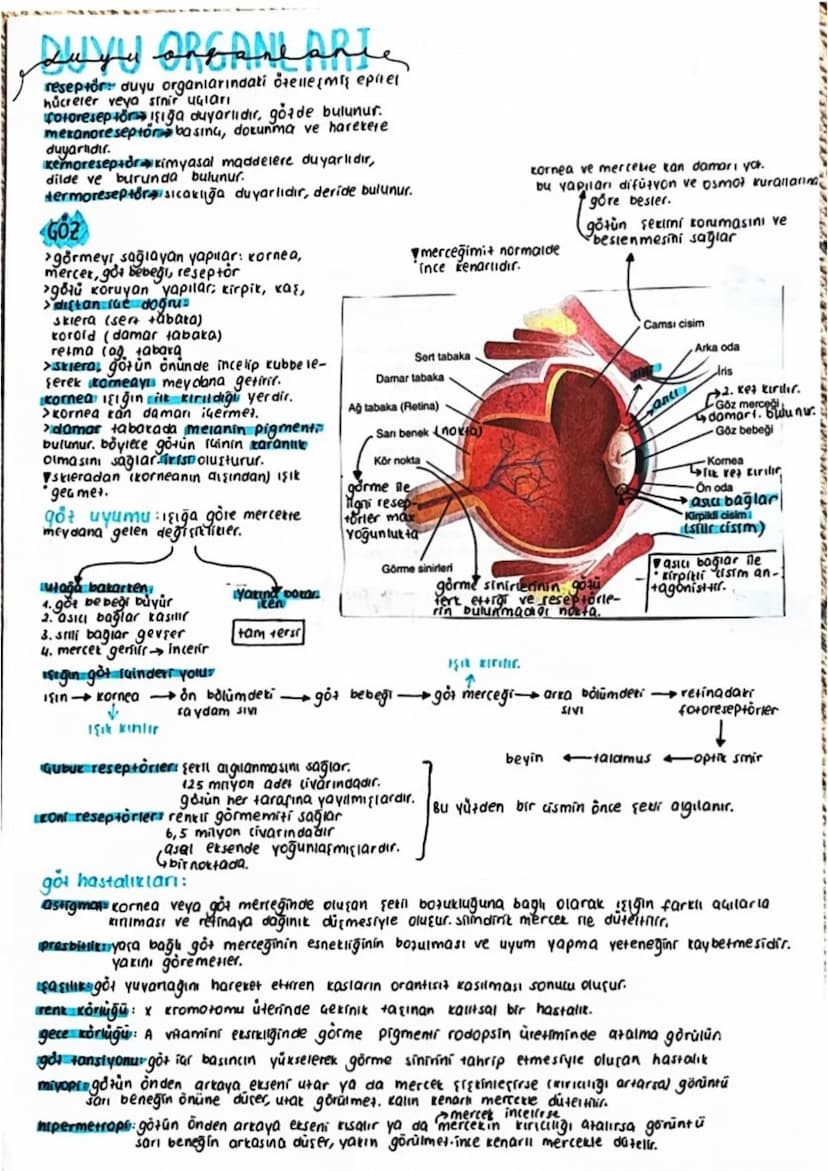 DUYU ORGANLARI
duyu organları
reseptör: duyu organlarındaki özelleşmiş epitel
hücreler veya sinir uçları
fotoreseptör→ ışığa duyarlıdır, gözde bulunur.
mekanoreseptör→ basınç, dokunma ve harekete
duyarlıdır.
kemoreseptör→ kimyasal maddelere duyarlıdır,
dilde ve burunda bulunur.
termoreseptör→ sıcaklığa duyarlıdır, deride bulunur.
kornea ve mercekte kan damarı yok.
bu yapıları difüzyon ve osmoz kurallarına
göre besler.
gözün şeklini korumasını ve
beslenmesini sağlar
merceğimiz normalde
ince kenarlıdır.
GÖZ
>görmeyi sağlayan yapılar: kornea,
mercek, göz bebeği, reseptör
>gözü koruyan yapılar; kirpik, kaş,
>dıştan içe doğru:
sklera (sert tabaka)
koroid (damar tabaka)
retina (ağ tabaka
>sklera, gözün önünde incelip kubbele-
şerek korneayı meydana getirir.
kornea ışığın ilk kırıldığı yerdir.
>kornea kan damarı içermez.
>damar tabakada melanin pigmenti
bulunur. böylece gözün içinin karanlık
olmasını sağlar. irisi oluşturur.
skleradan (korneanın dışından) ışık
geçmez.
Camsı cisim
Arka oda
İris
2. kez kırılır.
Göz merceği
→damar. bulunur.
Göz bebeği
Kornea
ilk kez kırılır
Ön oda
→ asıcı bağlar
Kirpikli cisim
(silli cisim)
Sert tabaka
Damar tabaka
Ağ tabaka (Retina)
Sarı benek (nokta)
Kör nokta
görme ile
ilgili resep-
törler max
yoğunlukta
Görme sinirleri
görme sinirlerinin gözü
terk ettiği ve reseptörle-
rin bulunmadığı nokta.
asıcı bağlar ile
kirpikli cisim an-
tagonisttir.
göz uyumu: ışığa göre mercekte
meydana gelen değişiklikler.
uzağa bakarken,
1. göz bebeği büyür
2. asıcı bağlar kasılır
3. silli bağlar gevşer
4. mercek gerilir→ incelir
yakına bakar-
ken
tam tersi
ışığın göz içindeki yolu:
ışın → kornea → ön bölümdeki → göz bebeği → göz merceği → arka bölümdeki → retinadaki
saydam sıvı
sıvı
fotoreseptörler
ışık kırılır
ışık kırılır.
beyin ← talamus ← optik sinir
Çubuk reseptörler: şekil algılanmasını sağlar.
125 milyon adet civarındadır.
gözün her tarafına yayılmışlardır.
koni reseptörler: renkli görmemizi sağlar
6,5 milyon civarındadır
asal eksende yoğunlaşmışlardır.
bir noktada.
Bu yüzden bir cismin önce şekli algılanır.
göz hastalıkları:
astigmat: kornea veya göz merceğinde oluşan şekil bozukluğuna bağlı olarak ışığın farklı açılarla
kırılması ve retinaya dağınık düşmesiyle oluşur. silindirik mercek ile düzeltilir.
presbitlik: yaşa bağlı göz merceğinin esnekliğinin bozulması ve uyum yapma yeteneğini kaybetmesidir.
yakını göremezler.
şaşılık: göz yuvarlağını hareket ettiren kasların orantısız kasılması sonucu oluşur.
renk körlüğü: x kromozomu üzerinde çekinik taşınan kalıtsal bir hastalık.
gece körlüğü: A vitamini eksikliğinde görme pigmenti rodopsin üretiminde azalma görülür.
göz tansiyonu: göz içi basıncın yükselerek görme sinirini tahrip etmesiyle oluşan hastalık
miyopi: gözün önden arkaya ekseni uzar ya da mercek şişkinleşirse (kırıcılığı artarsa) görüntü
sarı beneğin önüne düşer, uzak görülmez. kalın kenarlı mercekle düzeltilir.
mercek incelirse
hipermetropi: gözün önden arkaya ekseni kısalır ya da mercekin kırıcılığı azalırsa görüntü
sarı beneğin arkasına düşer, yakın görülmez. ince kenarlı mercekle düzelir.